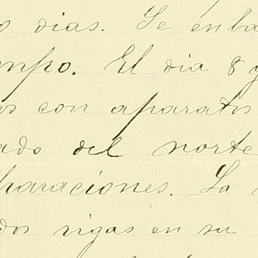 s dias. Se en ba
mpo. El dia 8 y
os con aparatos
ado del norte
paraciones. La
dos vigas en su